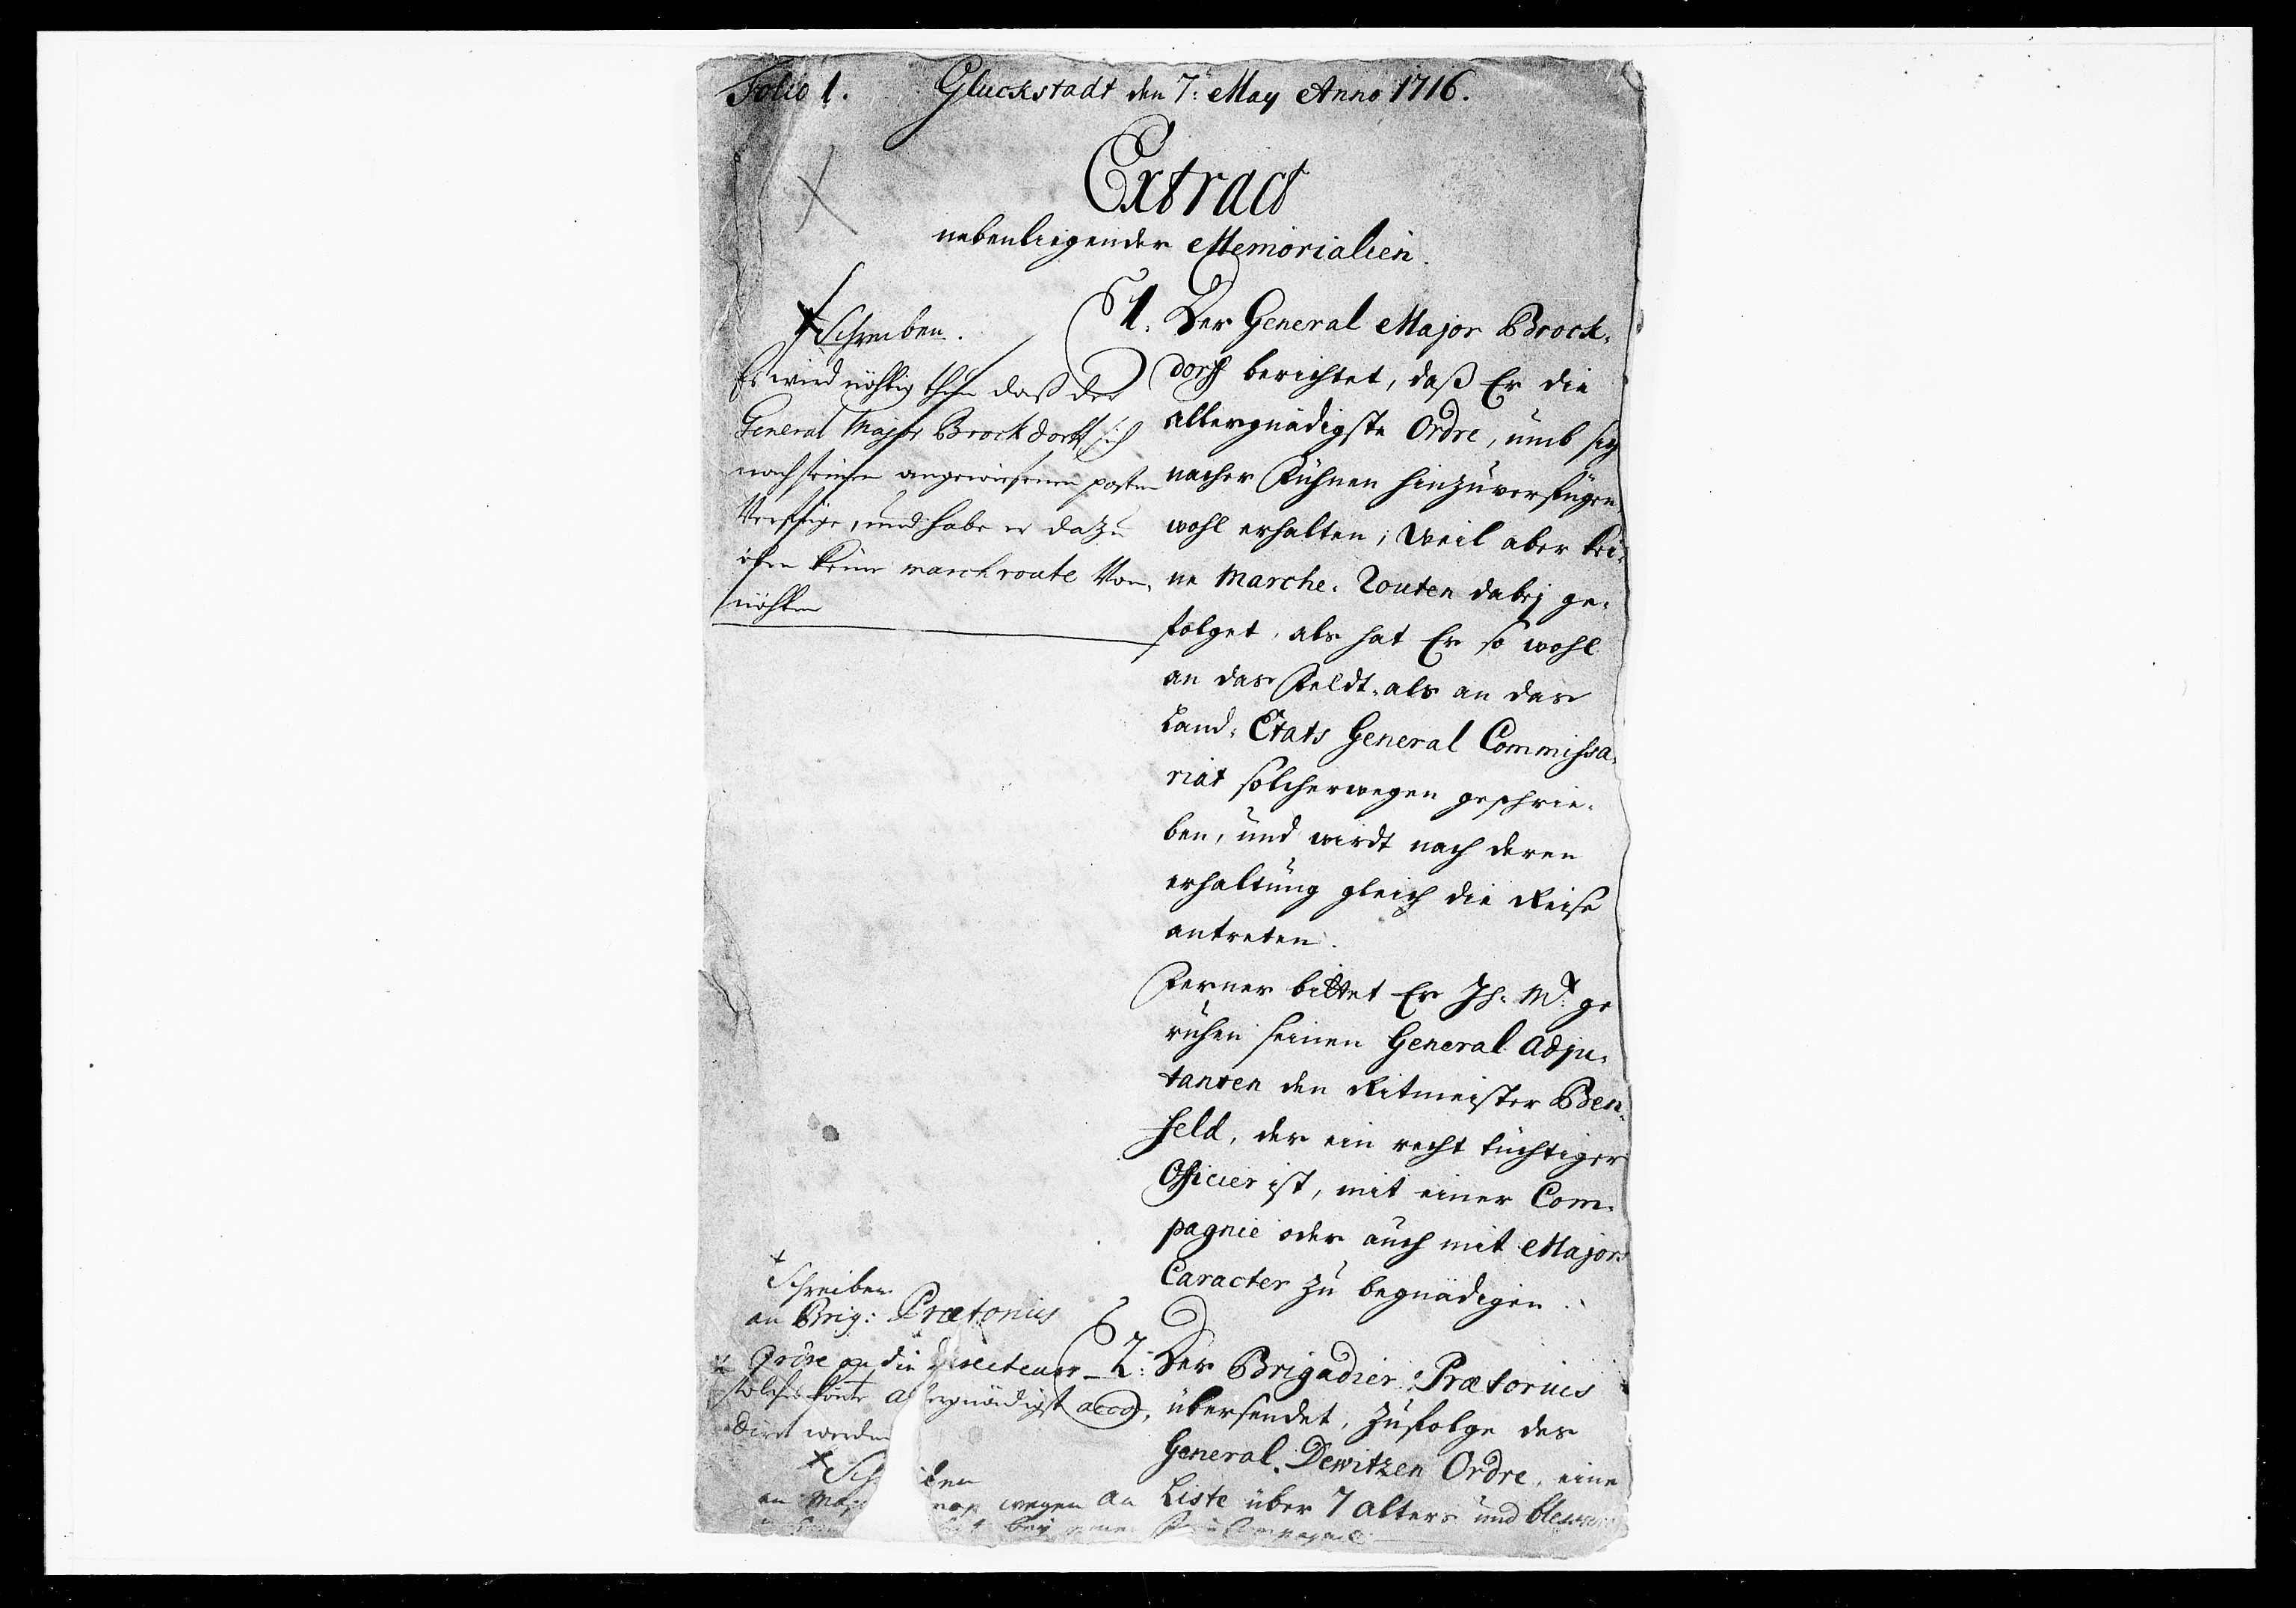 Folio 1. Gluckstadt den 7. May Anno 1716.
Extract
nebenliegender Memorialien.
Schreiben.
Es wird nöhtig thun daß der
General Major Brockdorff sich
nach seinen angewiesenen posten
Verfüge, und habe er dazu
eben keine march route Von,
nöhten
1. Der General Major Brock-
dorff berichtet, daß Er die
allergnädigste Ordre, umb sig
nacher Fühnen hinzuverfügen
wohl erhalten; Weil aber kei-
ne Marche-Routen dabej ge-
folget, als hat Er so wohl
an das Feldt- als an das
Land-Etats General Commissa-
riat solcherwegen geschrie-
ben, und wirdt nach deren
erhaltung gleich die Reise
antreten.
Ferner bittet Er Ih: Mt: ge
ruhen seinen General Adju-
tanten den Ritmeister Ben-
feld, der ein recht tüchtiger
Officier ist, mit einer Com-
pagnie oder auch mit Majors
Caracter zu begnädigen.
Schreiben
an Brig: Prætorius
Ordre an die
solches könte allergnädigst acco-
diret werden
Schreiben
an Maj wegen an
bey einer Compagnie
2. Der Brigadier Prætorius
übersendet, zufolge des
General Dewitzen Ordre, eine
Liste über 7 alters und